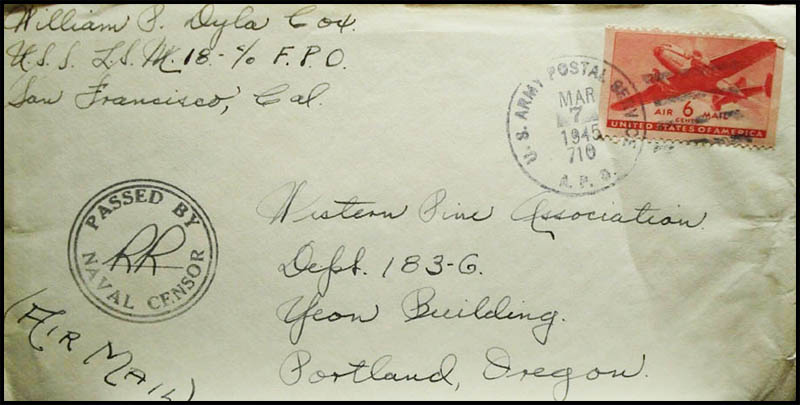 William P. Dyla Cox.
U.S.S. L.S.M. 18 - c/o F.P.O.
San Francisco, Cal.
U.S. ARMY POSTAL SERVICE
MAR
7
1945
710
A.P.O.
AIR 6 MAIL
CENTS
UNITED STATES OF AMERICA
PASSED BY
RR
NAVAL CENSOR
(AIR MAIL)
Western Pine Association.
Dept. 183-G.
Yeon Building.
Portland, Oregon.